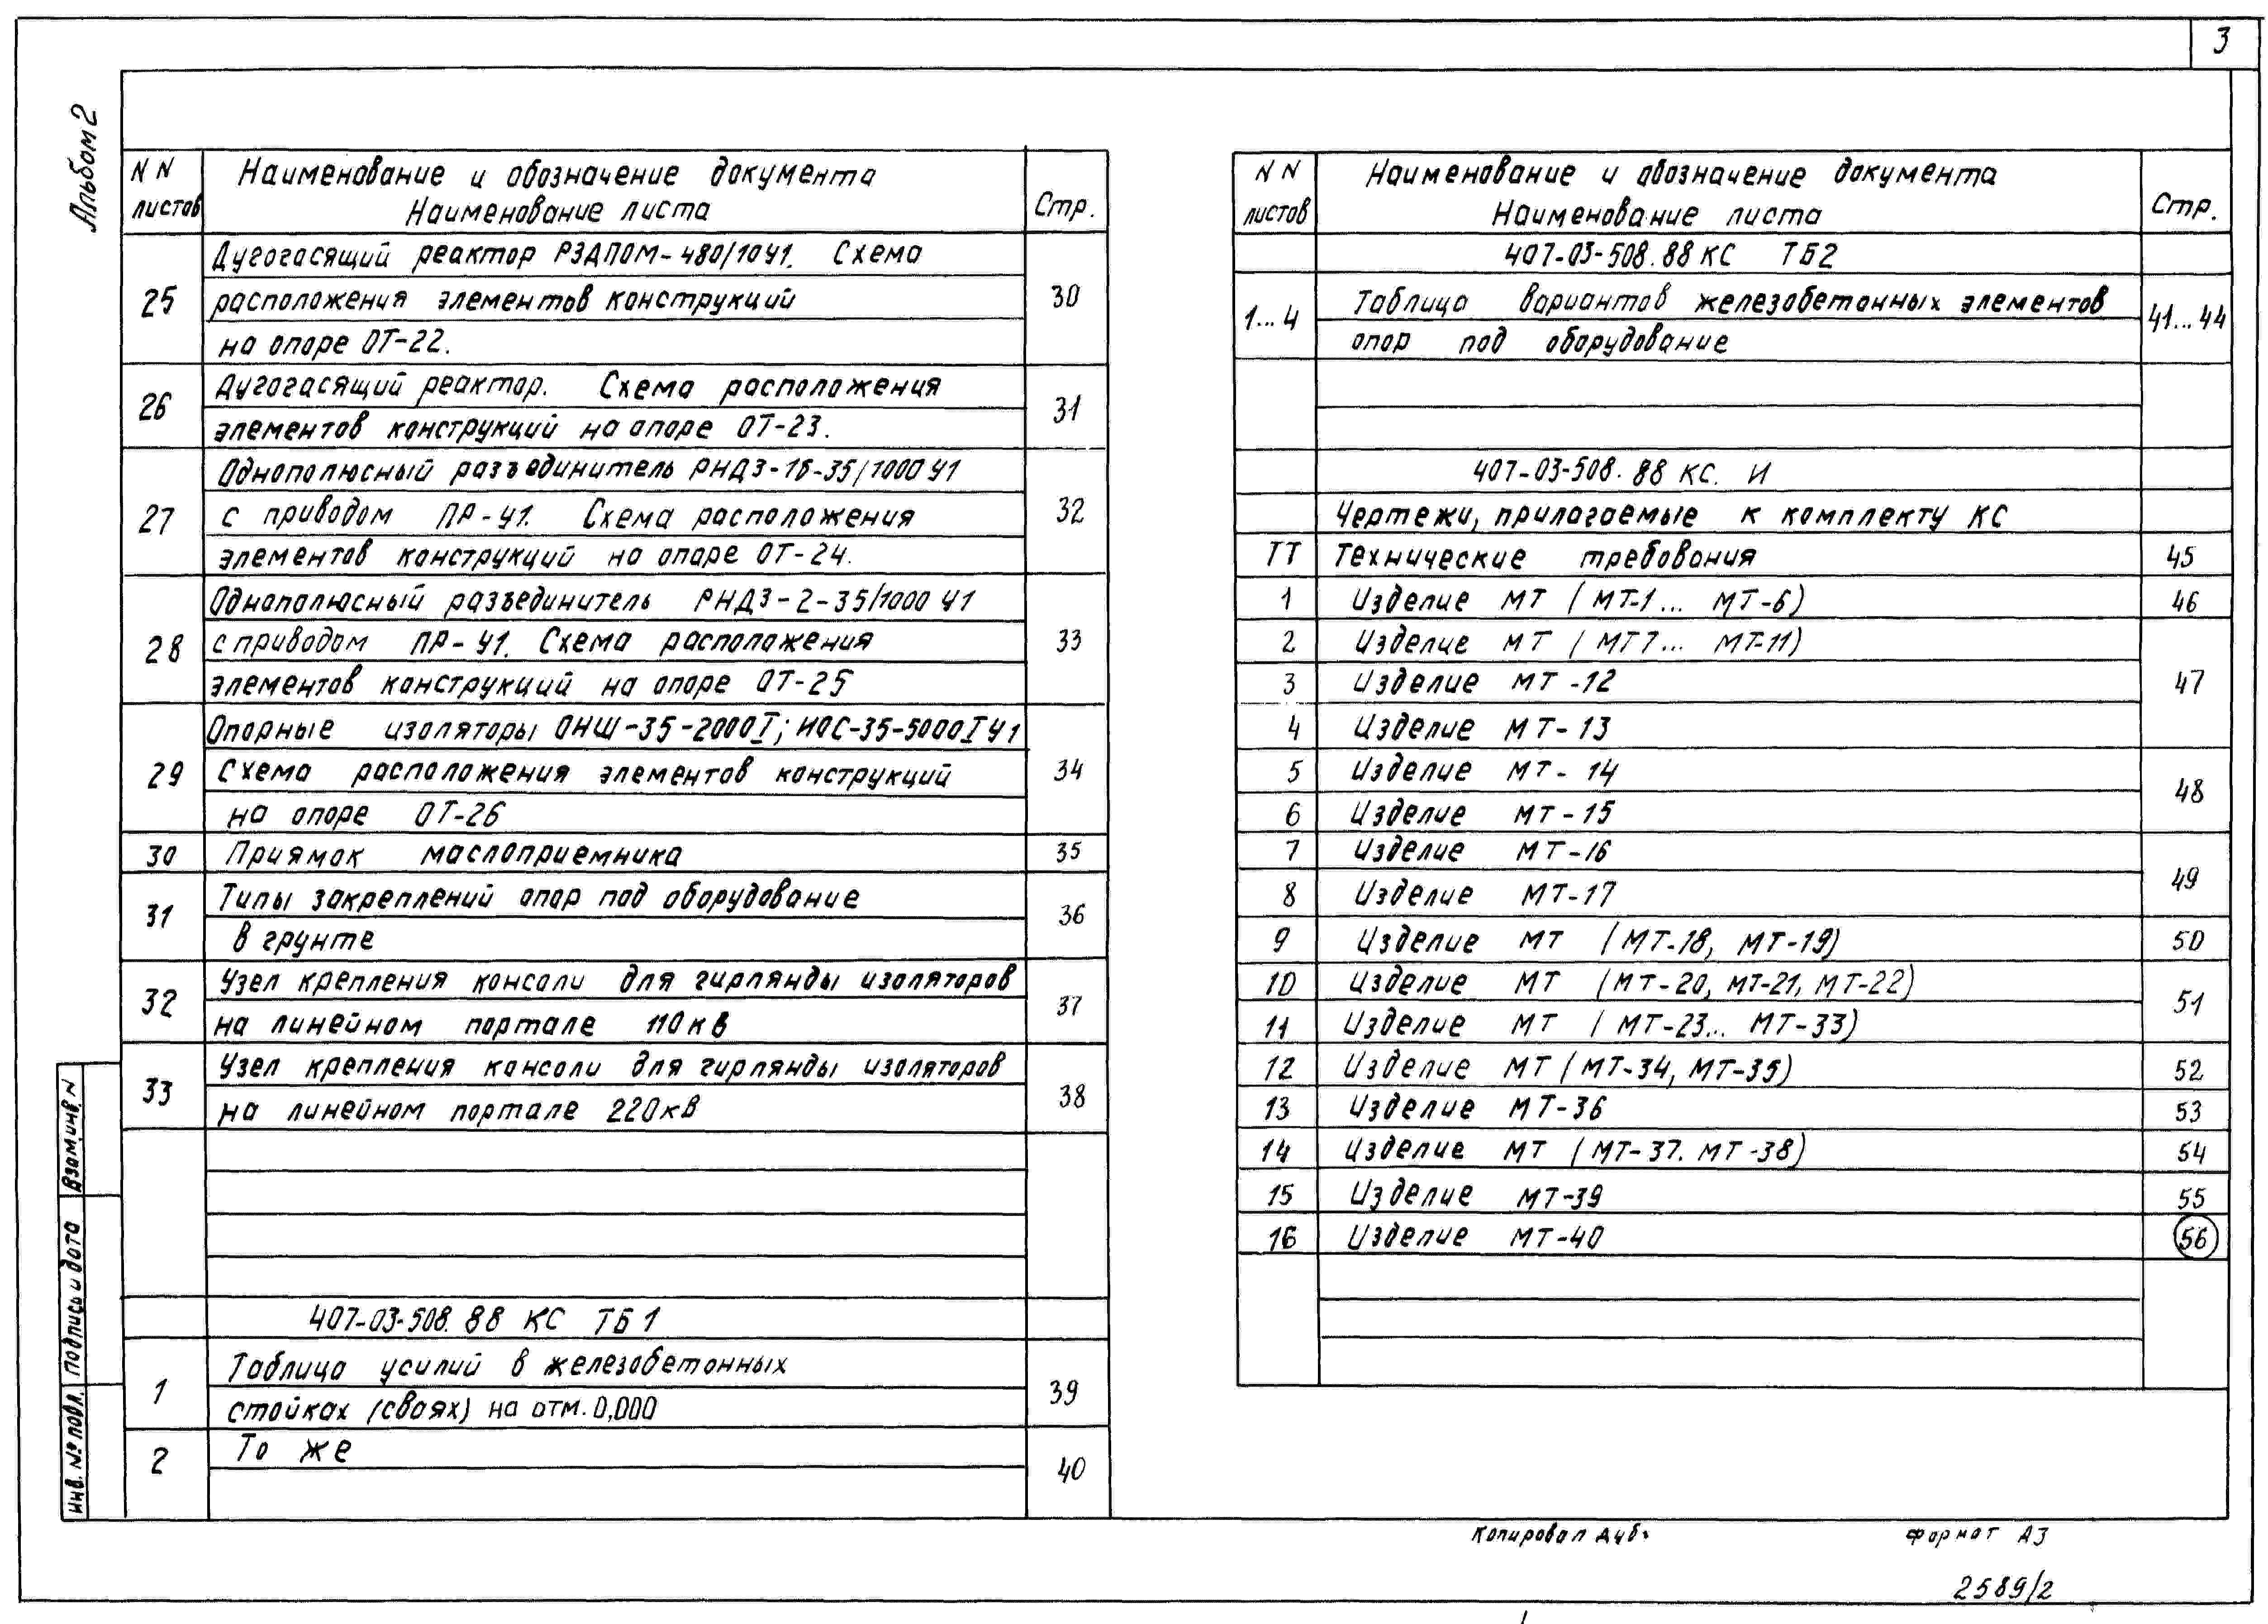 3
Альбом 2
NN листов
Наименование и обозначение документа
Наименование листа
Стр.
25
Дугогасящий реактор РЗДПОМ-480/10У1. Схема
расположения элементов конструкций
на опоре ОТ-22.
30
26
Дугогасящий реактор. Схема расположения
элементов конструкций на опоре ОТ-23.
31
27
Однополюсный разъединитель РНДЗ-1б-35/1000 У1
с приводом ПР-У1. Схема расположения
элементов конструкций на опоре ОТ-24.
32
28
Однополюсный разъединитель РНДЗ-2-35/1000 У1
с приводом ПР-У1. Схема расположения
элементов конструкций на опоре ОТ-25
33
29
Опорные изоляторы ОНШ-35-2000I; ИОС-35-5000I У1
Схема расположения элементов конструкций
на опоре ОТ-26
34
30 Приямок маслоприемника 35
31
Типы закреплений опор под оборудование
в грунте
36
32
Узел крепления консоли для гирлянды изоляторов
на линейном портале 110кв
37
33
Узел крепления консоли для гирлянды изоляторов
на линейном портале 220кв
38
407-03-508.88 КС ТБ1
1
Таблица усилий в железобетонных
стойках (сваях) на отм. 0,000
39
2 То же 40
NN листов
Наименование и обозначение документа
Наименование листа
Стр.
407-03-508.88 КС ТБ2
1...4
Таблица вариантов железобетонных элементов
опор под оборудование
41...44
407-03-508.88 КС. И
Чертежи, прилагаемые к комплекту КС
ТТ Технические требования 45
1 Изделие МТ (МТ-1... МТ-6) 46
2 Изделие МТ (МТ7... МТ-11)
3 Изделие МТ-12 47
4 Изделие МТ-13
5 Изделие МТ-14 48
6 Изделие МТ-15
7 Изделие МТ-16 49
8 Изделие МТ-17
9 Изделие МТ (МТ-18, МТ-19) 50
10 Изделие МТ (МТ-20, МТ-21, МТ-22) 51
11 Изделие МТ (МТ-23... МТ-33)
12 Изделие МТ (МТ-34, МТ-35) 52
13 Изделие МТ-36 53
14 Изделие МТ (МТ-37. МТ-38) 54
15 Изделие МТ-39 55
16 Изделие МТ-40 56
Инв. № подл. Подпись и дата Взам.инв.N
Копировал Формат А3
2589/2